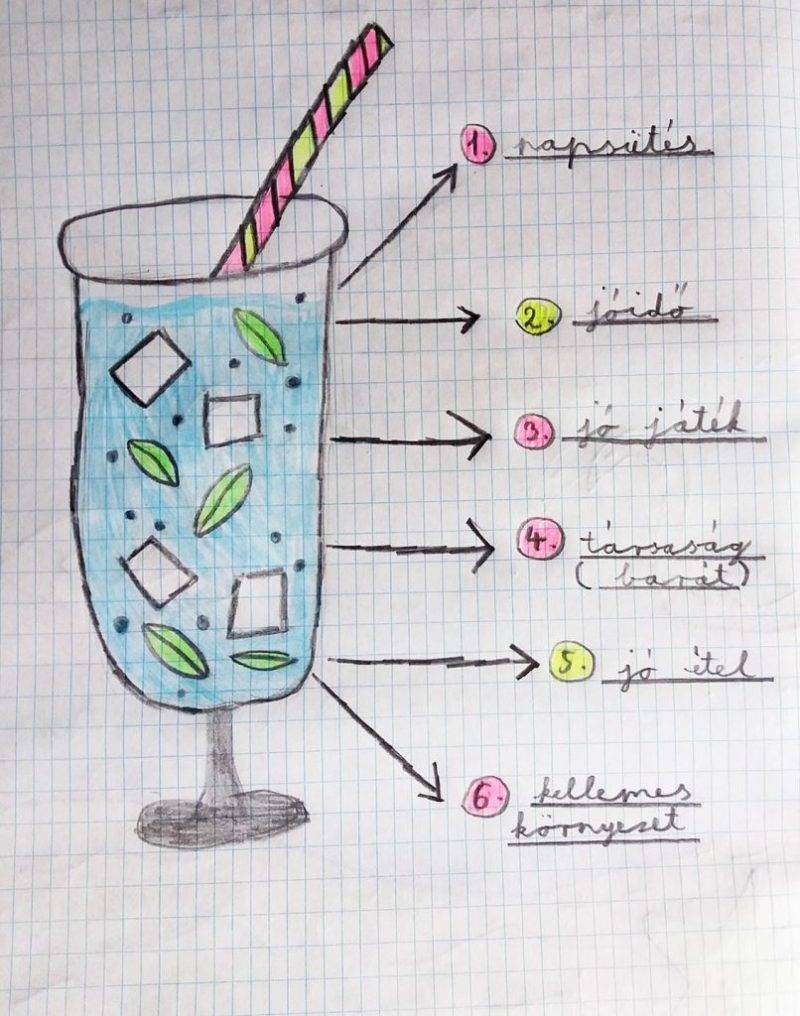 1. napsütés
2. jóidő
3. jó játék
4. társaság
(barát)
5. jó étel
6. kellemes
környezet